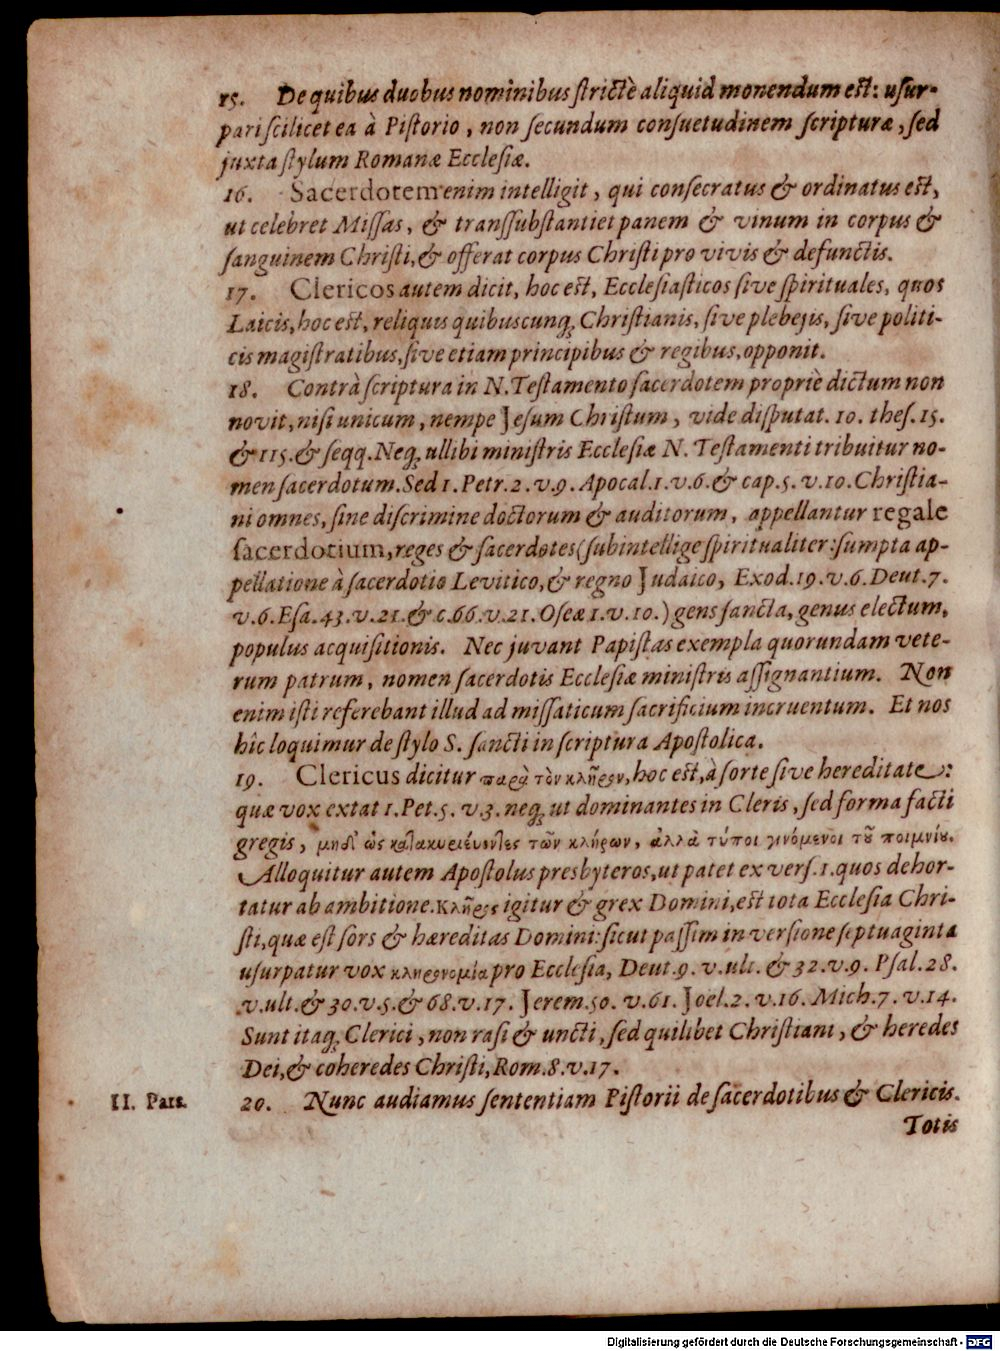 15. De quibus duobus nominibus strictè aliquid monendum est: usur-
pari scilicet ea à Pistorio, non secundum consuetudinem scripturæ, sed
juxta stylum Romanæ Ecclesiæ.
16. Sacerdotem enim intelligit, qui consecratus & ordinatus est,
ut celebret Missas, & transsubstantiet panem & vinum in corpus &
sanguinem Christi, & offerat corpus Christi pro vivis & defunctis.
17. Clericos autem dicit, hoc est, Ecclesiasticos sive spirituales, quos
Laicis, hoc est, reliquis quibuscunq; Christianis, sive plebejis, sive politi-
cis magistratibus, sive etiam principibus & regibus, opponit.
18. Contrà scriptura in N. Testamento sacerdotem propriè dictum non
novit, nisi unicum, nempe Jesum Christum, vide disputat. 10. thes. 15.
& 115. & seqq. Neq; ullibi ministris Ecclesiæ N. Testamenti tribuitur no-
men sacerdotum. Sed 1. Petr. 2. v. 9. Apocal. 1. v. 6. & cap. 5. v. 10. Christia-
ni omnes, sine discrimine doctorum & auditorum, appellantur regale
sacerdotium, reges & sacerdotes (subintellige spiritualiter: sumpta ap-
pellatione à sacerdotio Levitico, & regno Judaico, Exod. 19. v. 6. Deut. 7.
v. 6. Esa. 43. v. 21. & c. 66. v. 21. Oseæ 1. v. 10.) gens sancta, genus electum,
populus acquisitionis. Nec juvant Papistas exempla quorundam vete-
rum patrum, nomen sacerdotis Ecclesiæ ministris assignantium. Non
enim isti referebant illud ad missaticum sacrificium incruentum. Et nos
hîc loquimur de stylo S. sancti in scriptura Apostolica.
19. Clericus dicitur παρὰ τὸν κλῆρον, hoc est, à sorte sive hereditate:
quæ vox extat 1. Pet. 5. v. 3. neq; ut dominantes in Cleris, sed forma facti
gregis, μηδ' ὡς κατακυριέυοντες τῶν κλήρων, ἀλλὰ τύποι γινόμενοι τοῦ ποιμνίου.
Alloquitur autem Apostolus presbyteros, ut patet ex vers. 1. quos dehor-
tatur ab ambitione. Κλῆρος igitur & grex Domini, est tota Ecclesia Chri-
sti, quæ est sors & hæreditas Domini: sicut passim in versione septuaginta
usurpatur vox κληρονομία pro Ecclesia, Deut. 9. v. ult. & 32. v. 9. Psal. 28.
v. ult. & 30. v. 5. & 68. v. 17. Jerem. 50. v. 61. Joel. 2. v. 16. Mich. 7. v. 14.
Sunt itaq; Clerici, non rasi & uncti, sed quilibet Christiani, & heredes
Dei, & coheredes Christi, Rom. 8. v. 17.
II. Pars. 20. Nunc audiamus sententiam Pistorii de sacerdotibus & Clericis.
Totis
Digitalisierung gefördert durch die Deutsche Forschungsgemeinschaft - DFG